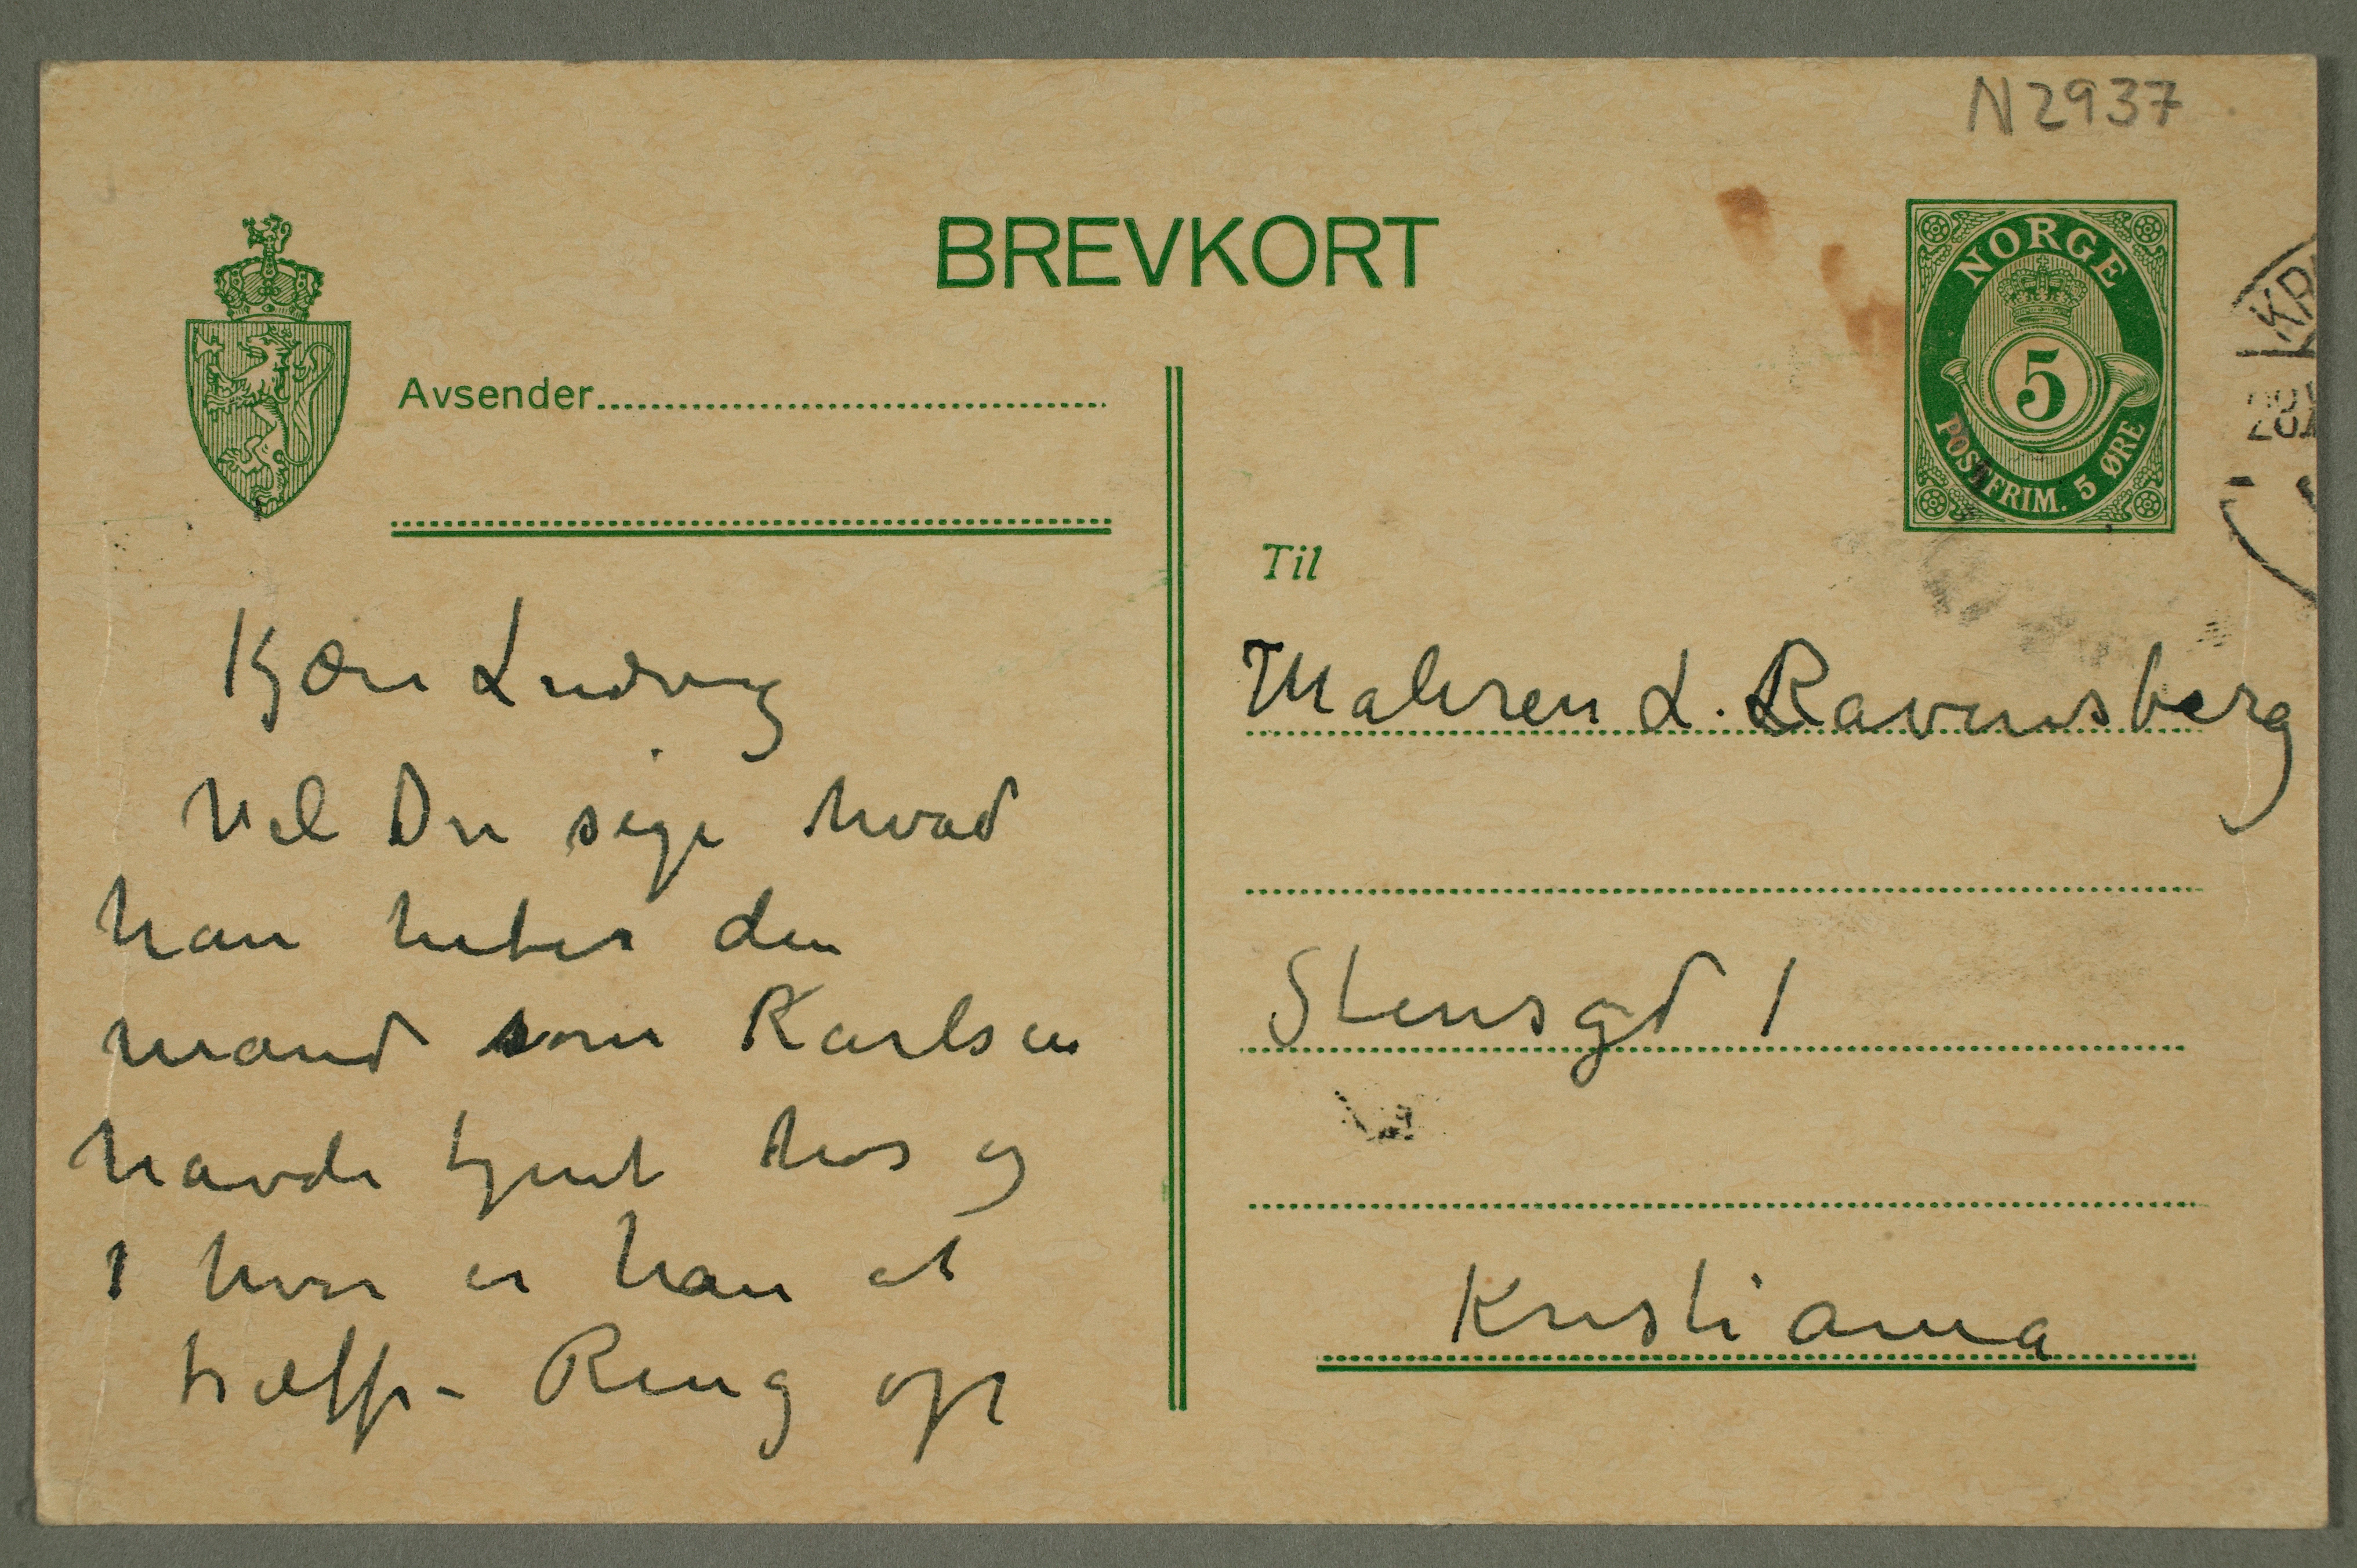 N 2937
BREVKORT
NORGE
5
POSTFRIM. 5 ØRE
KR
Avsender
Til
Kjære Ludvig
Vil Du sige hvad
han heter den
mand som Karlsen
havde tjent hos og
1 hvor er han at
træffe – Ring op
Maleren L. Ravensberg
Stensgd 1
Kristiania